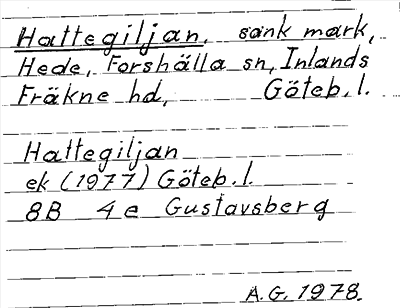 Hattegiljan, sank mark,
Hede, Forshälla sn, Inlands
Fräkne hd, Göteb. l.
Hattegiljan
ek (1977) Göteb. l.
8B 4e Gustavsberg
A.G. 1978.